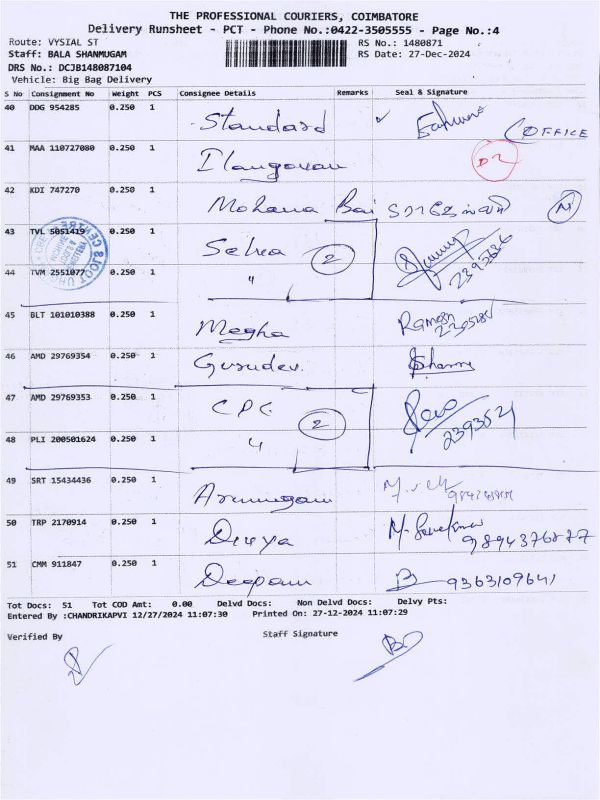 THE PROFESSIONAL COURIERS, COIMBATORE
Delivery Runsheet - PCT - Phone No.:0422-3505555 - Page No.:4
Route: VYSIAL ST RS No.: 1480871
Staff: BALA SHANMUGAM RS Date: 27-Dec-2024
DRS No.: DCJB148087104
Vehicle: Big Bag Delivery
S No Consignment No Weight PCS Consignee Details Remarks Seal & Signature
40 DDG 954285 0.250 1 Standard
(OFFICE
41 MAA 110727080 0.250 1 Ilangovan D2
42 KDI 747270 0.250 1 Mohana Bai N
43 TVL 5051419 0.250 1 Selva 2
44 TVM 2551077 0.250 1 " 2395686
45 BLT 101010388 0.250 1 Megha Ramesh
46 AMD 29769354 0.250 1 Gurudev.
47 AMD 29769353 0.250 1 CPC 2
48 PLI 200501624 0.250 1 " 2393521
49 SRT 15434436 0.250 1 Arumugam
50 TRP 2170914 0.250 1 Divya 9894376877
51 CMM 911847 0.250 1 Deepam 9363109641
Tot Docs: 51 Tot COD Amt: 0.00 Delvd Docs: Non Delvd Docs: Delvy Pts:
Entered By :CHANDRIKAPVI 12/27/2024 11:07:30 Printed On: 27-12-2024 11:07:29
Verified By Staff Signature